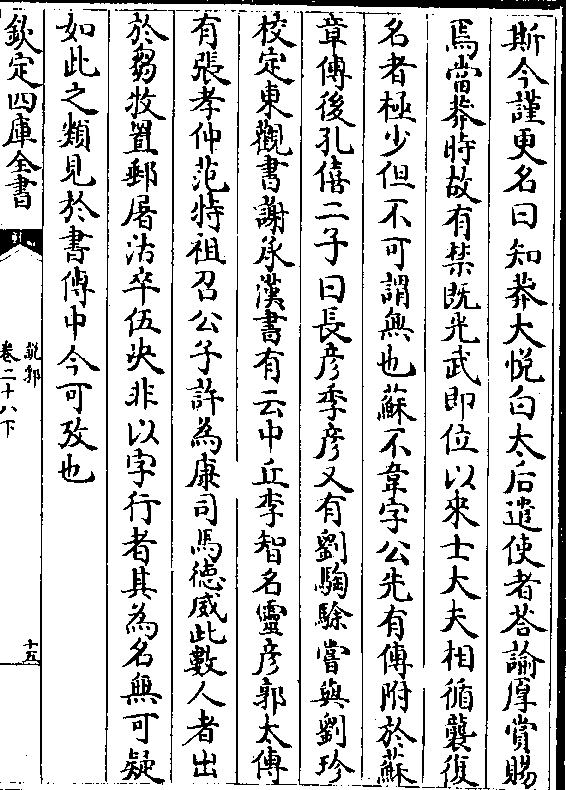 斯今謹更名曰知莽大悅白太后遣使者荅諭厚賞賜
焉當莽時故有禁既光武即位以來士大夫相循襲復
名者極少但不可謂無也蘇不韋字公先有傳附於蘇
章傳後孔僖二子曰長彦季彦又有劉騊駼嘗與劉珍
校定東觀書謝承漢書有云中丘李智名靈彦郭太傳
有張孝仲范特祖召公子許為康司馬德威此數人者出
於芻牧置郵屠沽卒伍決非以字行者其為名無可疑
如此之類見於書傳中今可攷也
欽定四庫全書
說郛
卷二十八下
十五